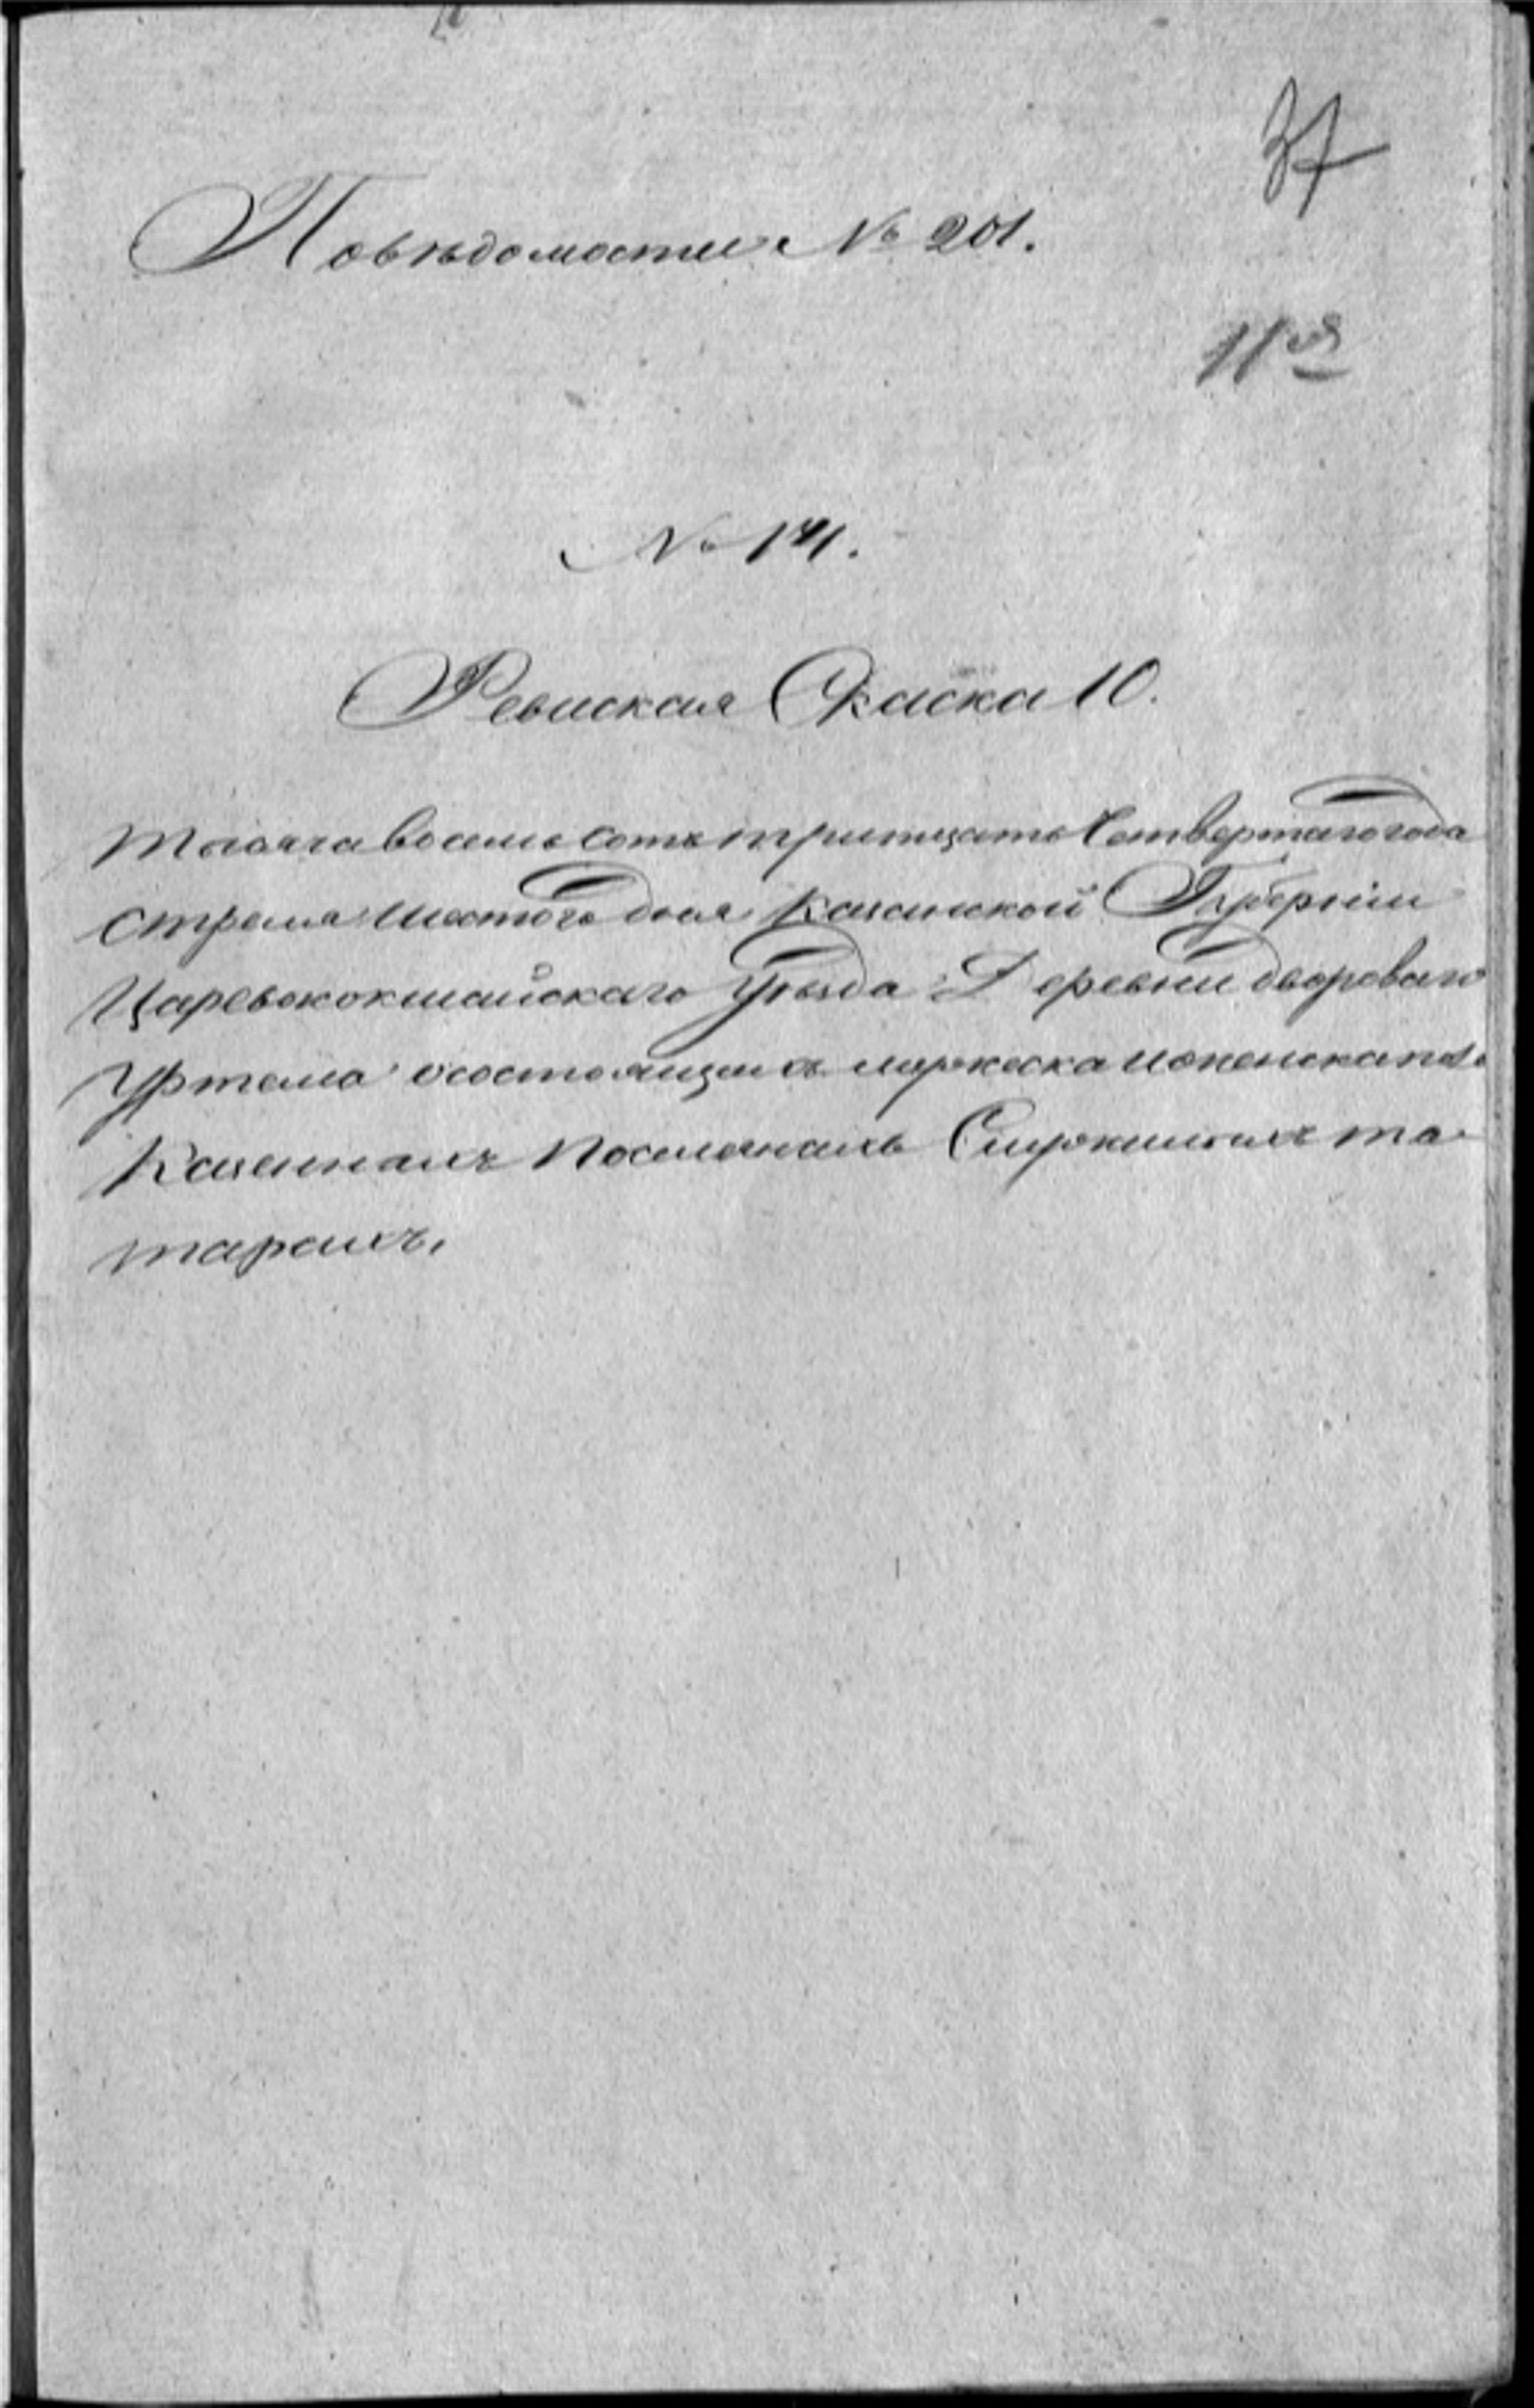 37
Поведомости № 201.
11ая
№ 141.
Ревиская Скаска 10.
Тысяча восемь сотъ тритцать Четвертаго года
Априля шестого дня Казанской Губерніи
Царевококшайскаго Уѣзда Деревни двороваго
Уртема осостоящихъ мужеска иженска полу
Казенныхъ Ясашныхъ Служилыхъ та
тарахъ,